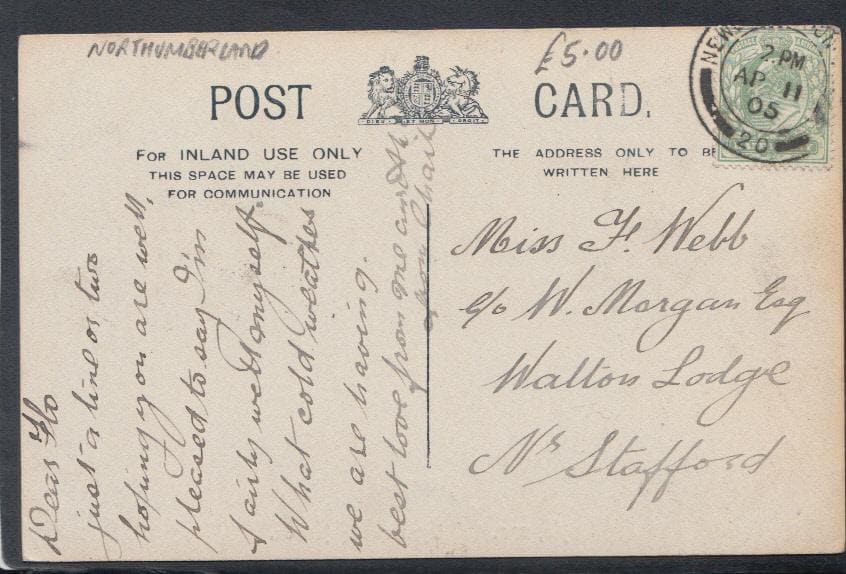 NORTHUMBERLAND
£5.00
POST CARD.
DIEU ET MON DROIT
FOR INLAND USE ONLY
THIS SPACE MAY BE USED
FOR COMMUNICATION
THE ADDRESS ONLY TO BE
WRITTEN HERE
2. PM
AP 11
05
20
Dear Flo
just a line or two
hoping you are well,
pleased to say I'm
fairly well myself.
What cold weather
we are having.
best love from me and
from
Miss F. Webb
c/o W. Morgan Esq
Walton Lodge
Nr Stafford